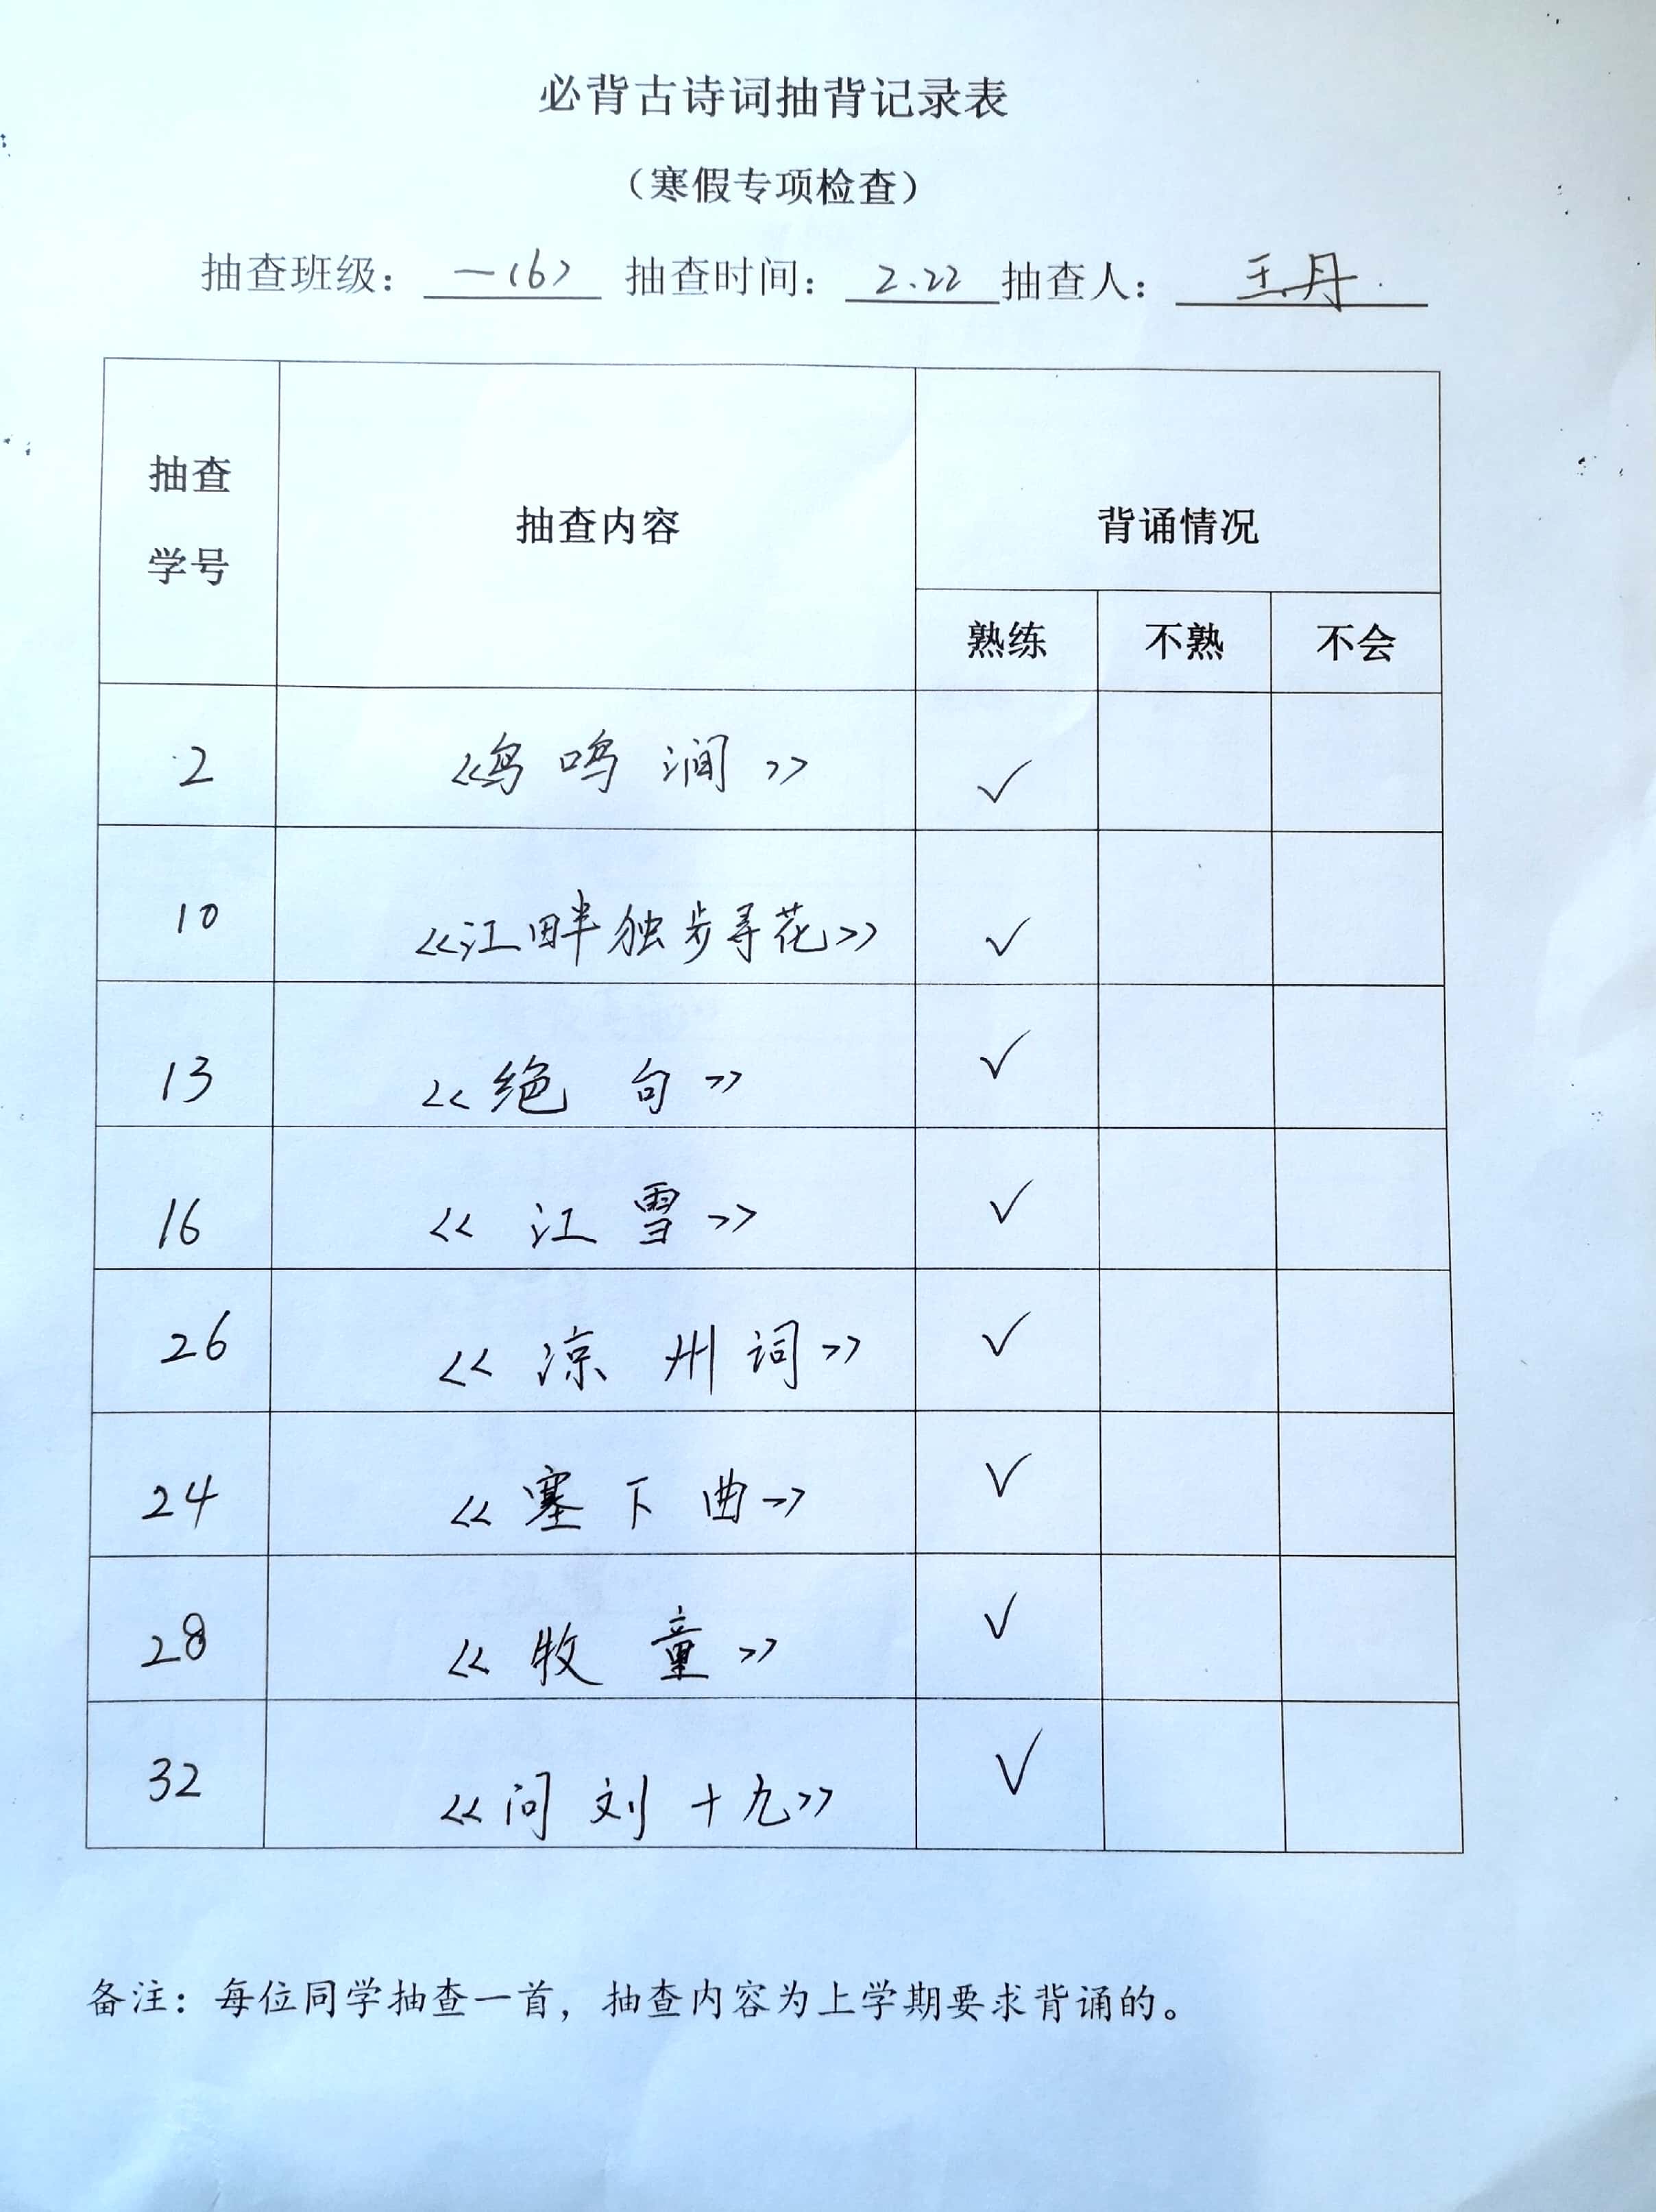 必背古诗词抽背记录表
（寒假专项检查）
抽查班级： 一(6) 抽查时间： 2.22 抽查人： 王丹
抽查学号 抽查内容 背诵情况
熟练 不熟 不会
2 《鸟鸣涧》 ✓
10 《江畔独步寻花》 ✓
13 《绝句》 ✓
16 《江雪》 ✓
26 《凉州词》 ✓
24 《塞下曲》 ✓
28 《牧童》 ✓
32 《问刘十九》 ✓
备注：每位同学抽查一首，抽查内容为上学期要求背诵的。